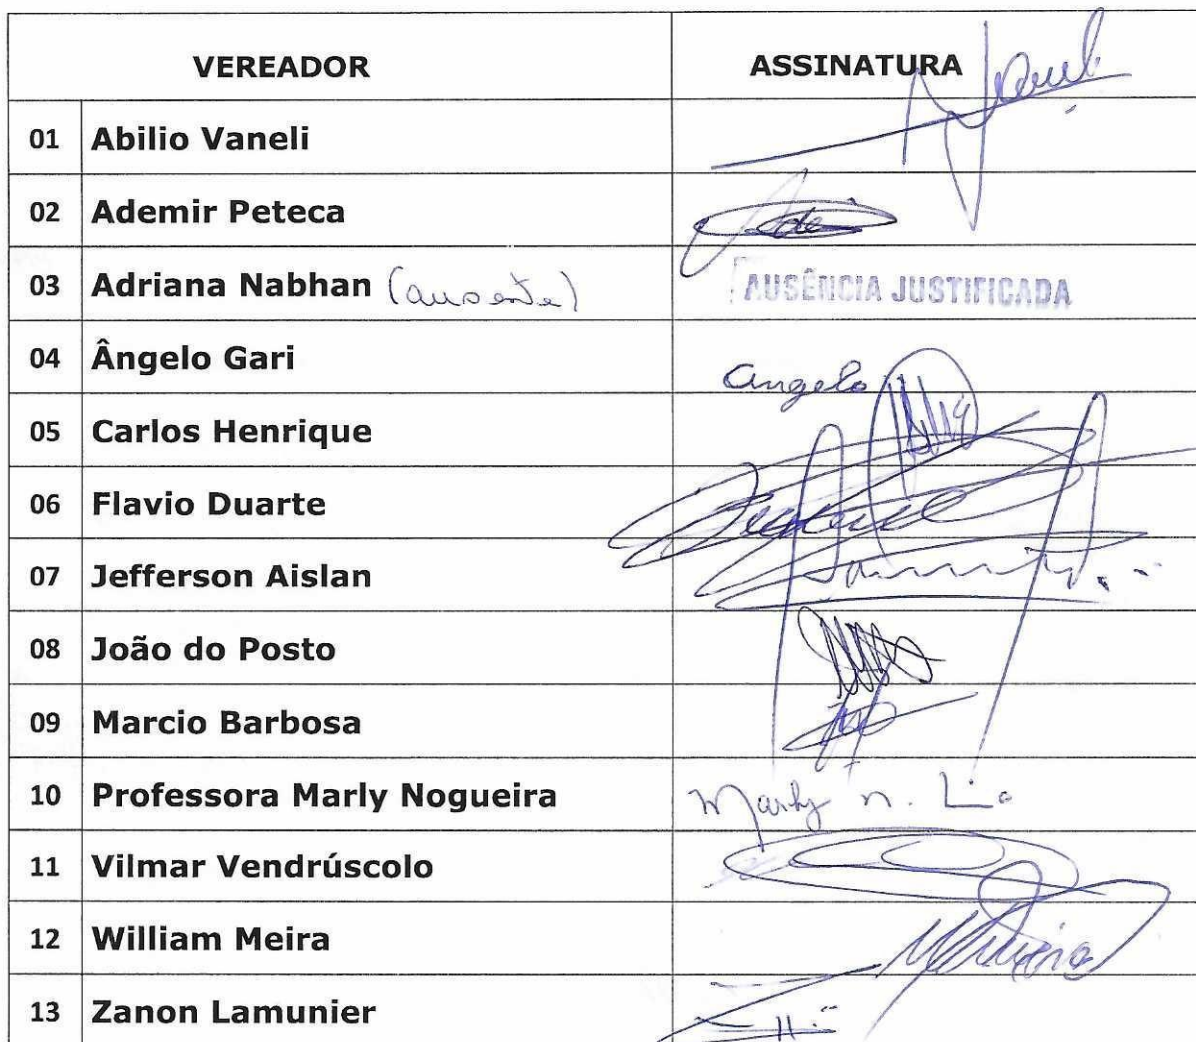 VEREADOR ASSINATURA
01 Abilio Vaneli
02 Ademir Peteca
03 Adriana Nabhan (ausente) AUSÊNCIA JUSTIFICADA
04 Ângelo Gari Angelo
05 Carlos Henrique
06 Flavio Duarte
07 Jefferson Aislan
08 João do Posto
09 Marcio Barbosa
10 Professora Marly Nogueira Marly n.
11 Vilmar Vendrúscolo
12 William Meira
13 Zanon Lamunier